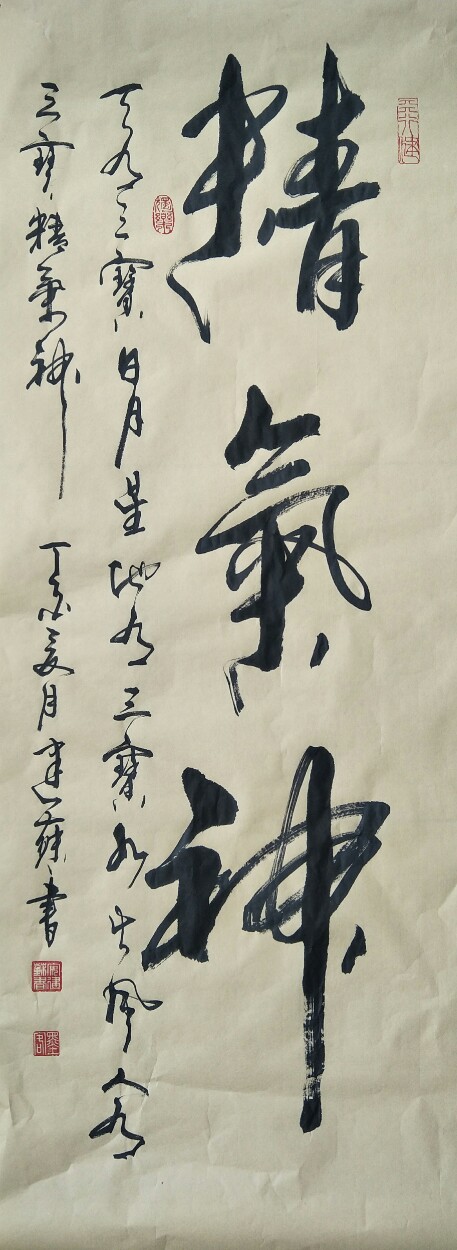 精氣神
天有三寶日月星地有三寶水火風人有
三寶精氣神
丁亥夏月建蘇書